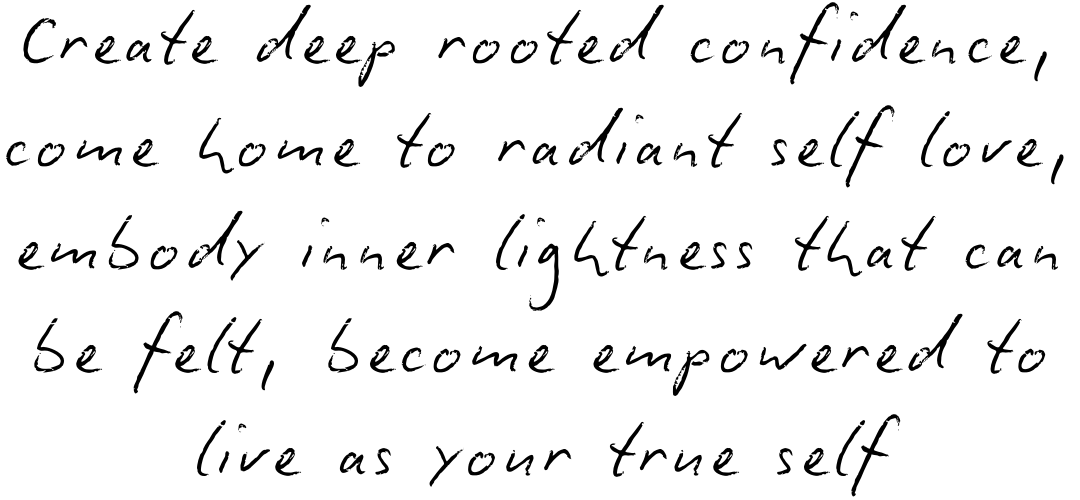 Create deep rooted confidence,
come home to radiant self love,
embody inner lightness that can
be felt, become empowered to
live as your true self